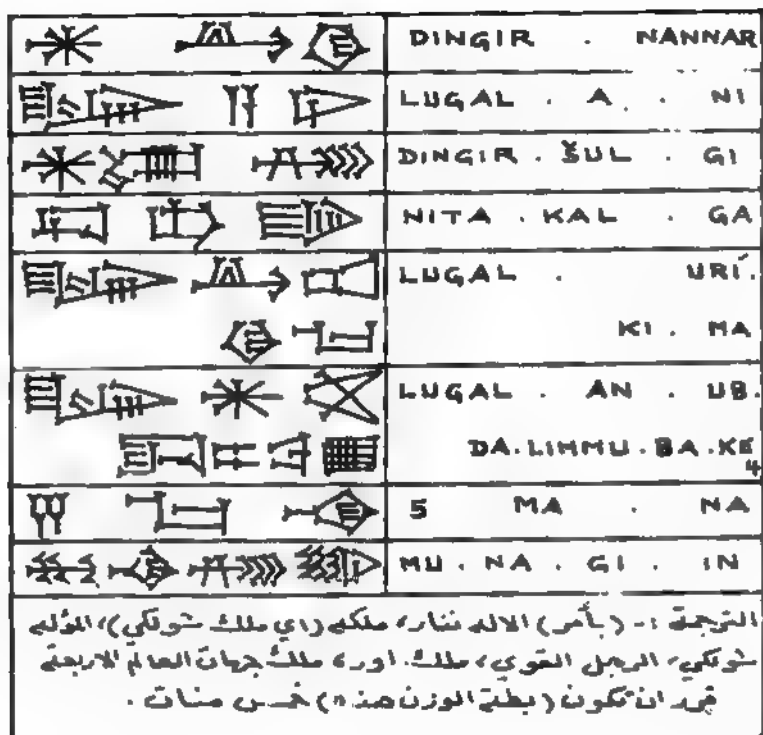 DINGIR . NANNAR
LUGAL . A . NI
DINGIR . ŠUL . GI
NITA . KAL . GA
LUGAL . URÍ.
KI . MA
LUGAL . AN . UB.
DA.LIMMU.BA.KE4
5 MA . NA
MU . NA . GI . IN
الترجمة :- (بأمر) الاله ننار، ملكه (اي ملك شولكي)، المؤله
شولكي، الرجل القوي، ملك اور، ملك جهات العالم الاربعة
ان تكون (بطة الوزن هذه) خمس منات .